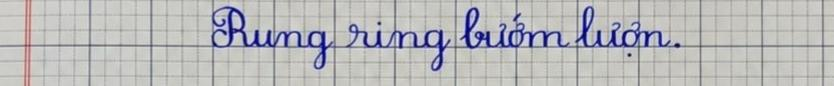 Rung ring bướm lượn.